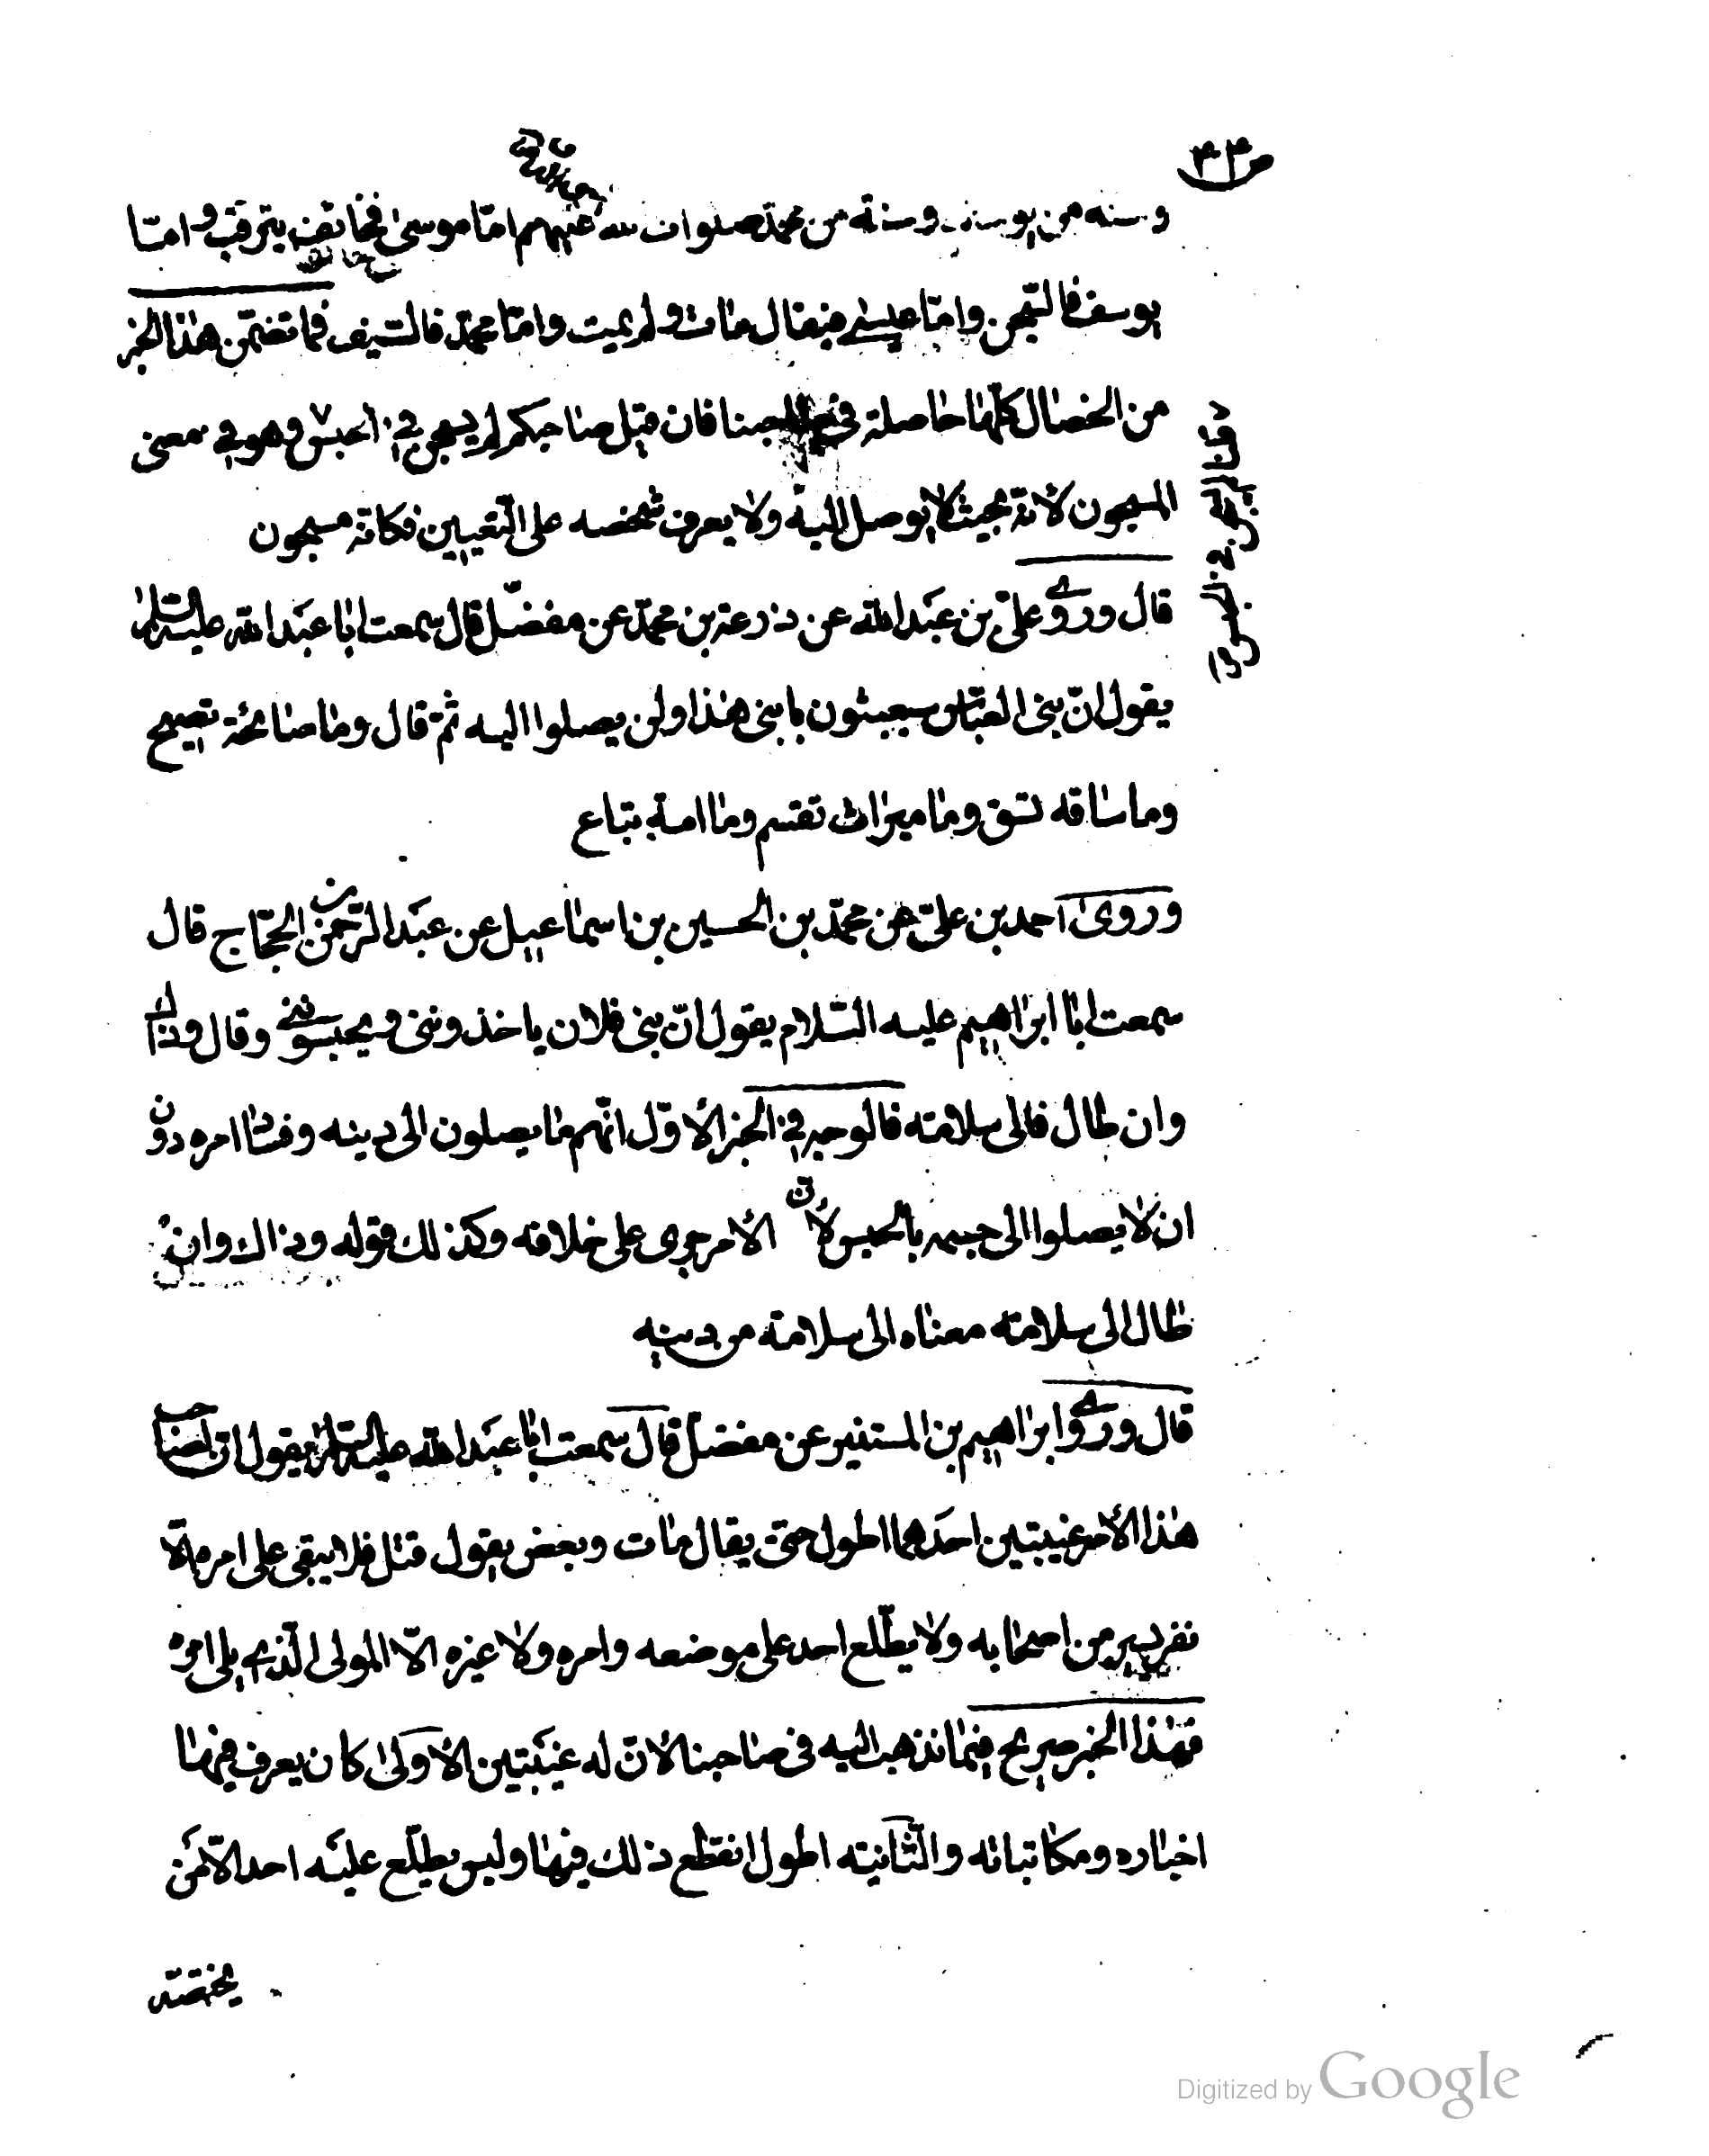 ص٣٣
وسنه من يوسف وسنة من محمد صلوات الله عليهم امّا موسى فخائف يترقب وامّا
يوسف فالسّجن وامّا عيسى فيقال مات ولم يمت وامّا محمّد فالسّيف فما تضمّن هذا الخبر
من الخصال كلّها حاصلة في صاحبنا فان قيل صاحبكم لم يسجن في الحبس وهو في معنى
المسجون لانّه بحيث لا يوصل اليه ولا يعرف شخصه على التّعيين فكانّه مسجون
قال وروى علىّ بن عبد الله عن ذرعة بن محمّد عن مفضّل قال سمعت ابا عبد الله عليه السّلام
يقول انّ بنى العبّاس سيعبثون بابنى هذا ولن يصلوا اليه ثمّ قال وما صائحة تصيح
وما ساقه تسق وما ميراث تقسم وما امة تباع
وروى احمد بن علىّ عن محمّد بن الحسين بن اسماعيل عن عبد الرّحمن بن الحجّاج قال
سمعت ابا ابراهيم عليه السّلام يقول انّ بنى فلان ياخذوننى ويحبسوننى وقال وذاك
وان طال فالى سلامته فالوجه في الخبر الاوّل انّهم ما يصلون الى دينه وفساد امره دون
ان لا يصلوا الى جسمه بالحبس لانّ الامر جرى على خلافه وكذلك قوله وذاك وان
طال الى سلامته معناه الى سلامة من دينه
قال وروى ابراهيم بن المستنير عن مفضل قال سمعت ابا عبد الله عليه السّلام يقول انّ لصاحب
هذا الأمر غيبتين احدهما اطول حتى يقال مات وبعض يقول قتل فلا يبقى على امره الّا
نفر يسير من اصحابه ولا يطّلع احد على موضعه وامره ولا غيره الّا المولى الّذى يلى امره
فهذا الخبر صريح فيما نذهب اليه فى صاحبنا لانّ له غيبتين الاولى كان يعرف فيها
اخباره ومكاتباته والثّانيته اطول انقطع ذلك فيها وليس يطّلع عليه احد الّا من
يختصّه
Digitized by Google